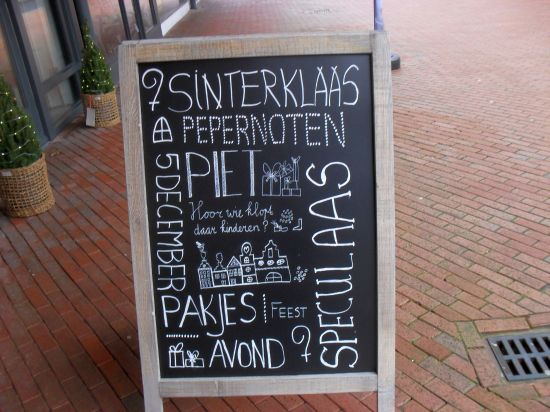 SINTERKLAAS
PEPERNOTEN
PIET
5 DECEMBER
Hoor wie klopt
daar kinderen?
SPECULAAS
PAKJES
FEEST
AVOND